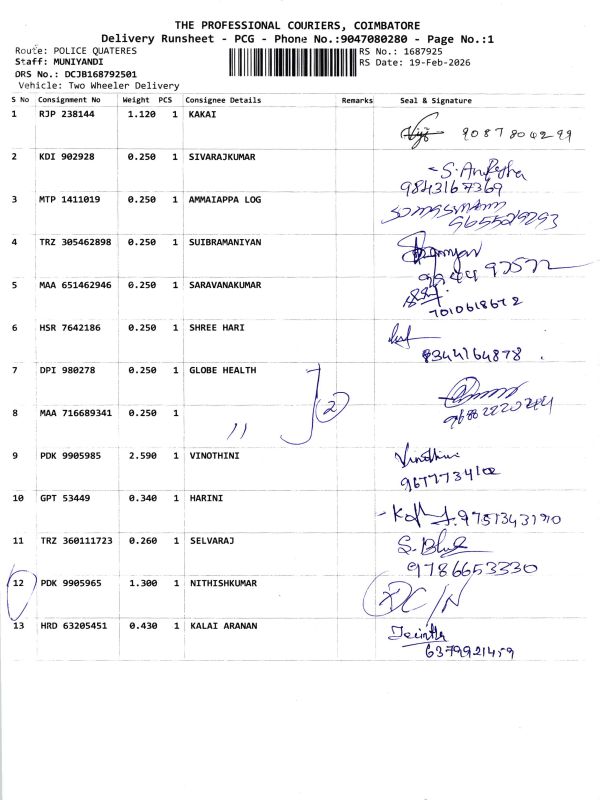 THE PROFESSIONAL COURIERS, COIMBATORE
Delivery Runsheet - PCG - Phone No.:9047080280 - Page No.:1
Route: POLICE QUATERES RS No.: 1687925
Staff: MUNIYANDI RS Date: 19-Feb-2026
DRS No.: DCJB168792501
Vehicle: Two Wheeler Delivery
S No Consignment No Weight PCS Consignee Details Remarks Seal & Signature
1 RJP 238144 1.120 1 KAKAI
2 KDI 902928 0.250 1 SIVARAJKUMAR
9843167369
3 MTP 1411019 0.250 1 AMMAIAPPA LOG
4 TRZ 305462898 0.250 1 SUIBRAMANIYAN
5 MAA 651462946 0.250 1 SARAVANAKUMAR
7010618672
6 HSR 7642186 0.250 1 SHREE HARI
9344164878
7 DPI 980278 0.250 1 GLOBE HEALTH
2
8 MAA 716689341 0.250 1
"
9 PDK 9905985 2.590 1 VINOTHINI Vinothini
9677734102
10 GPT 53449 0.340 1 HARINI 9751343190
11 TRZ 360111723 0.260 1 SELVARAJ
9786653330
12 PDK 9905965 1.300 1 NITHISHKUMAR DC/N
13 HRD 63205451 0.430 1 KALAI ARANAN
6379921459